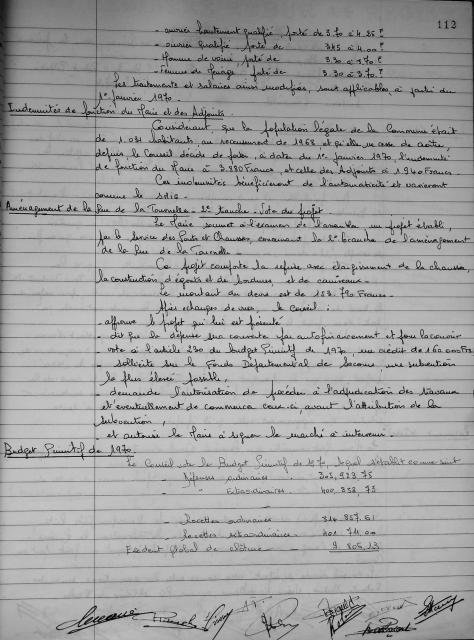 112
- ouvrier hautement qualifié, porté de 3.70 à 4.25 F
- ouvrier qualifié porté de 3.45 à 4.00 F
- Homme de voirie, porté de 3.30 à 3.70 F
- Femme de ménage porté de 3.30 à 3.70 F
Les traitements et salaires ainsi modifiés, sont applicables à partir du
1er janvier 1970.
Indemnités de fonction du Maire et des Adjoints.
Considérant que la population légale de la Commune était
de 1.031 habitants, au recensement de 1968 et qu'elle ne cesse de croître,
depuis, le Conseil décide de porter, à dater du 1er janvier 1970, l'indemnité
de fonction du Maire à 3.880 Francs, et celle des Adjoints à 1.940 Francs
Ces indemnités bénéficieront de l'automaticité et varieront
comme le
Aménagement de la Rue de la Tournelle - 2e tranche - Vote du projet
Le Maire soumet à l'examen de l'assemblée un projet établi,
par le Service des Ponts et Chaussées, concernant la 2e tranche de l'aménagement
de la Rue de la Tournelle.
Ce projet comporte la refuse avec élargissement de la chaussée,
la construction d'égouts et de bordures, et de caniveaux.
Le montant du devis est de 153.790 Francs.
Après échanges de vues, le Conseil :
- approuve le projet qui lui est présenté
- dit que la dépense sera couverte par autofinancement et pour la couvrir
vote à l'article 230 du budget Primitif de 1970, un crédit de 160.000 Frs
- sollicite sur le Fonds Départemental de Secours, une subvention
la plus élevée possible,
- demande l'autorisation de procéder à l'adjudication des travaux
et éventuellement de commencer ceux-ci, avant l'attribution de la
subvention,
et autorise le Maire à signer le marché à intervenir.
Budget Primitif de 1970.
Le Conseil vote le Budget Primitif de 1970, lequel s'établit comme suit
- Dépenses ordinaires 305,923,75
- " Extraordinaires 400.358,75
- Recettes ordinaires 314 857.61
- Recettes extraordinaires 401 711.00
Excédent global de clôture 9 805.13